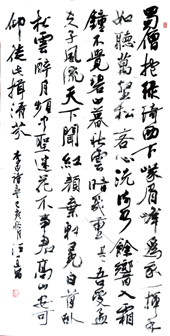 蜀僧抱绿绮西下峨眉峰为我一挥手
如聽萬壑松客心洗流水餘響入霜
鐘不覺碧山暮秋雲暗幾重吾愛孟
夫子風流天下聞紅顏棄軒冕白首卧
松雲醉月頻中聖迷花不事君高山安可
仰徒此揖清芬 李白詩